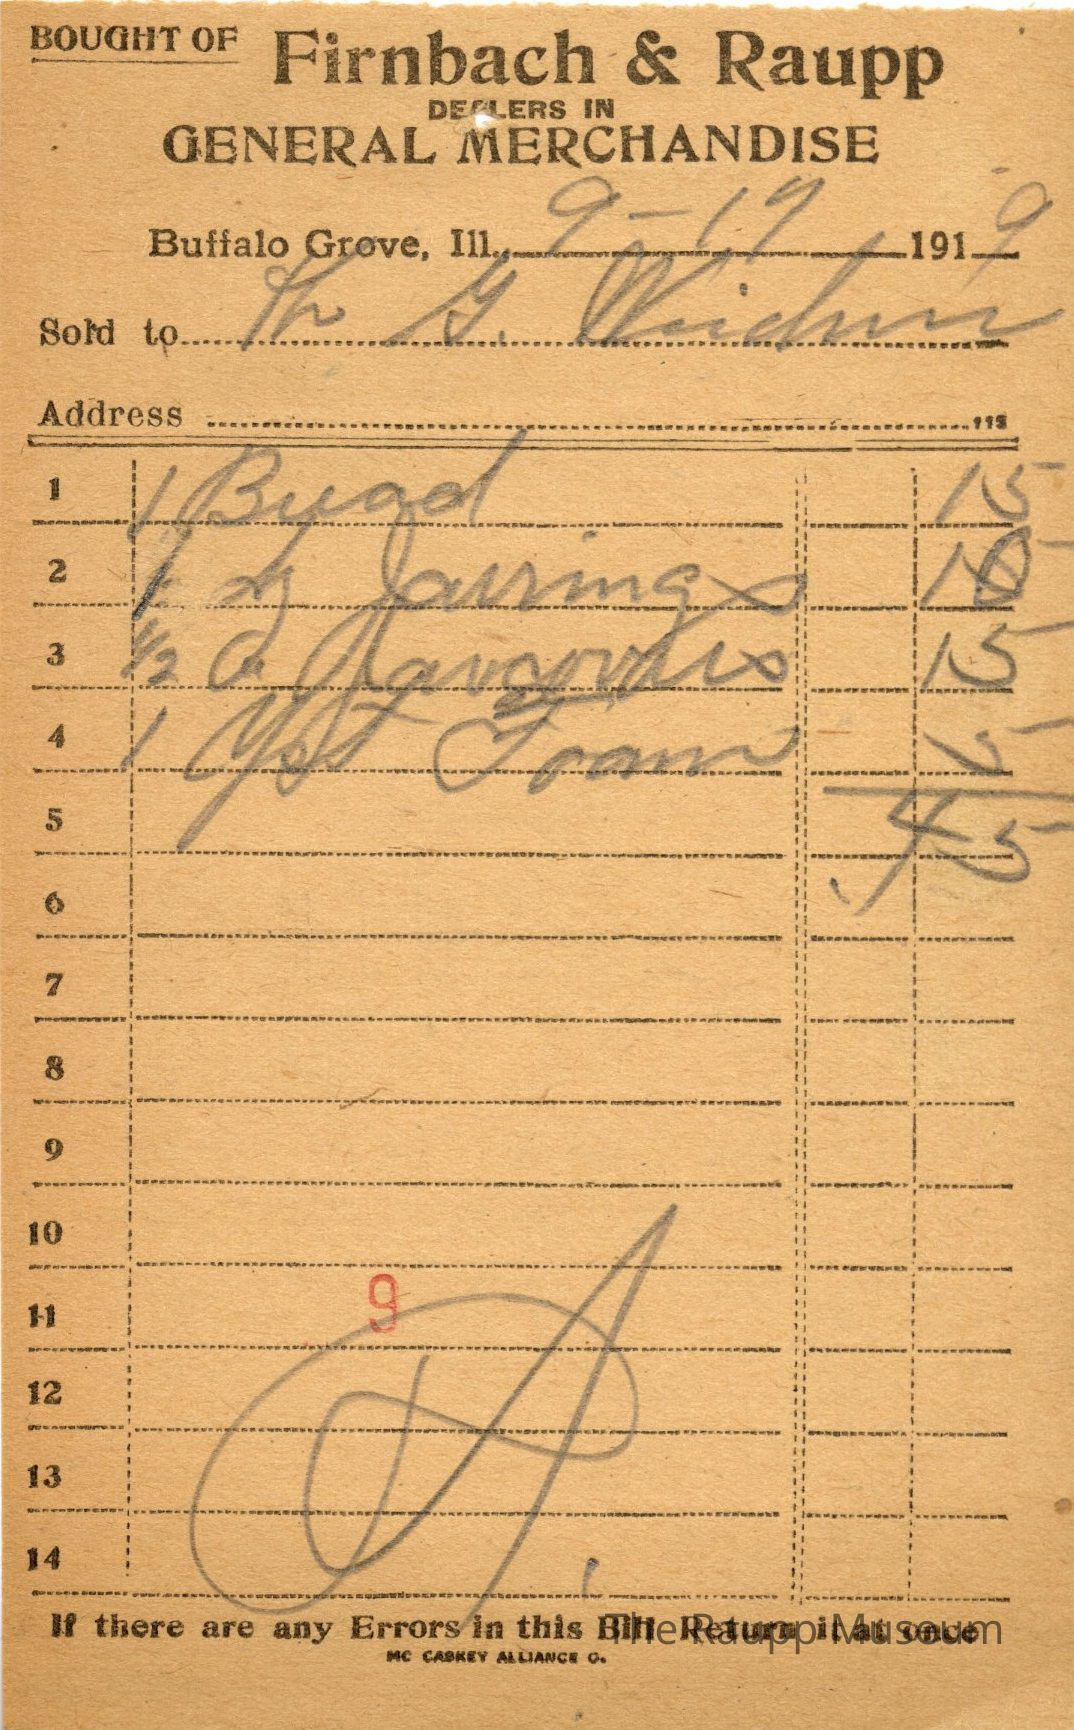 BOUGHT OF Firnbach & Raupp
DEALERS IN
GENERAL MERCHANDISE
Buffalo Grove, Ill., 9-19 1919
Sold to G.
Address
1 1 15
2 1 10
3 1/2 15
4 1 Yst Foam 5
5 .45
6
7
8
9
10
11 9
12
13
14
If there are any Errors in this Bill Return it at once
The Raupp Museum
MC CASKEY ALLIANCE O.